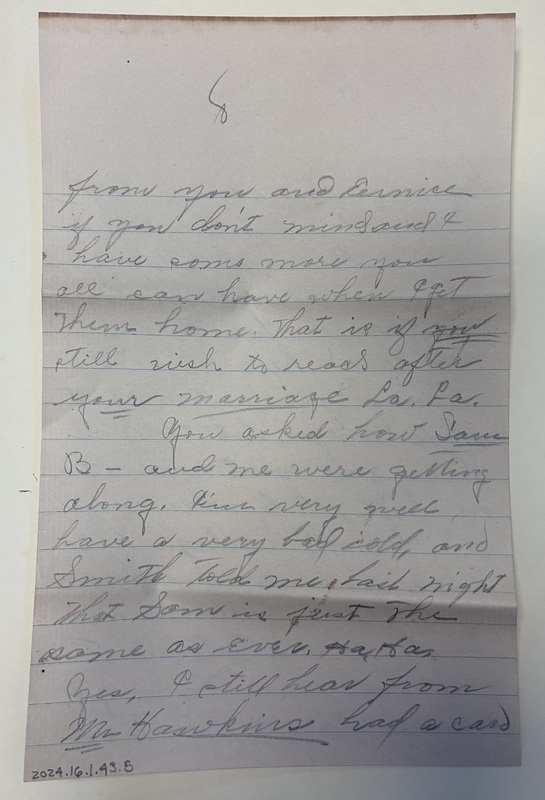 8
from you and Bernice
if you don't mind and I
have some more you
all can have when I get
them home. That is if you
still wish to read after
your marriage La. La.
You asked how Sam
B - and me were getting
along. I'm very well,
have a very bad cold, and
Smith told me last night
that Sam is just the
same as Ever. Ha, Ha,
Yes, I still hear from
Mr Hawkins had a card
2024.16.1.43.5